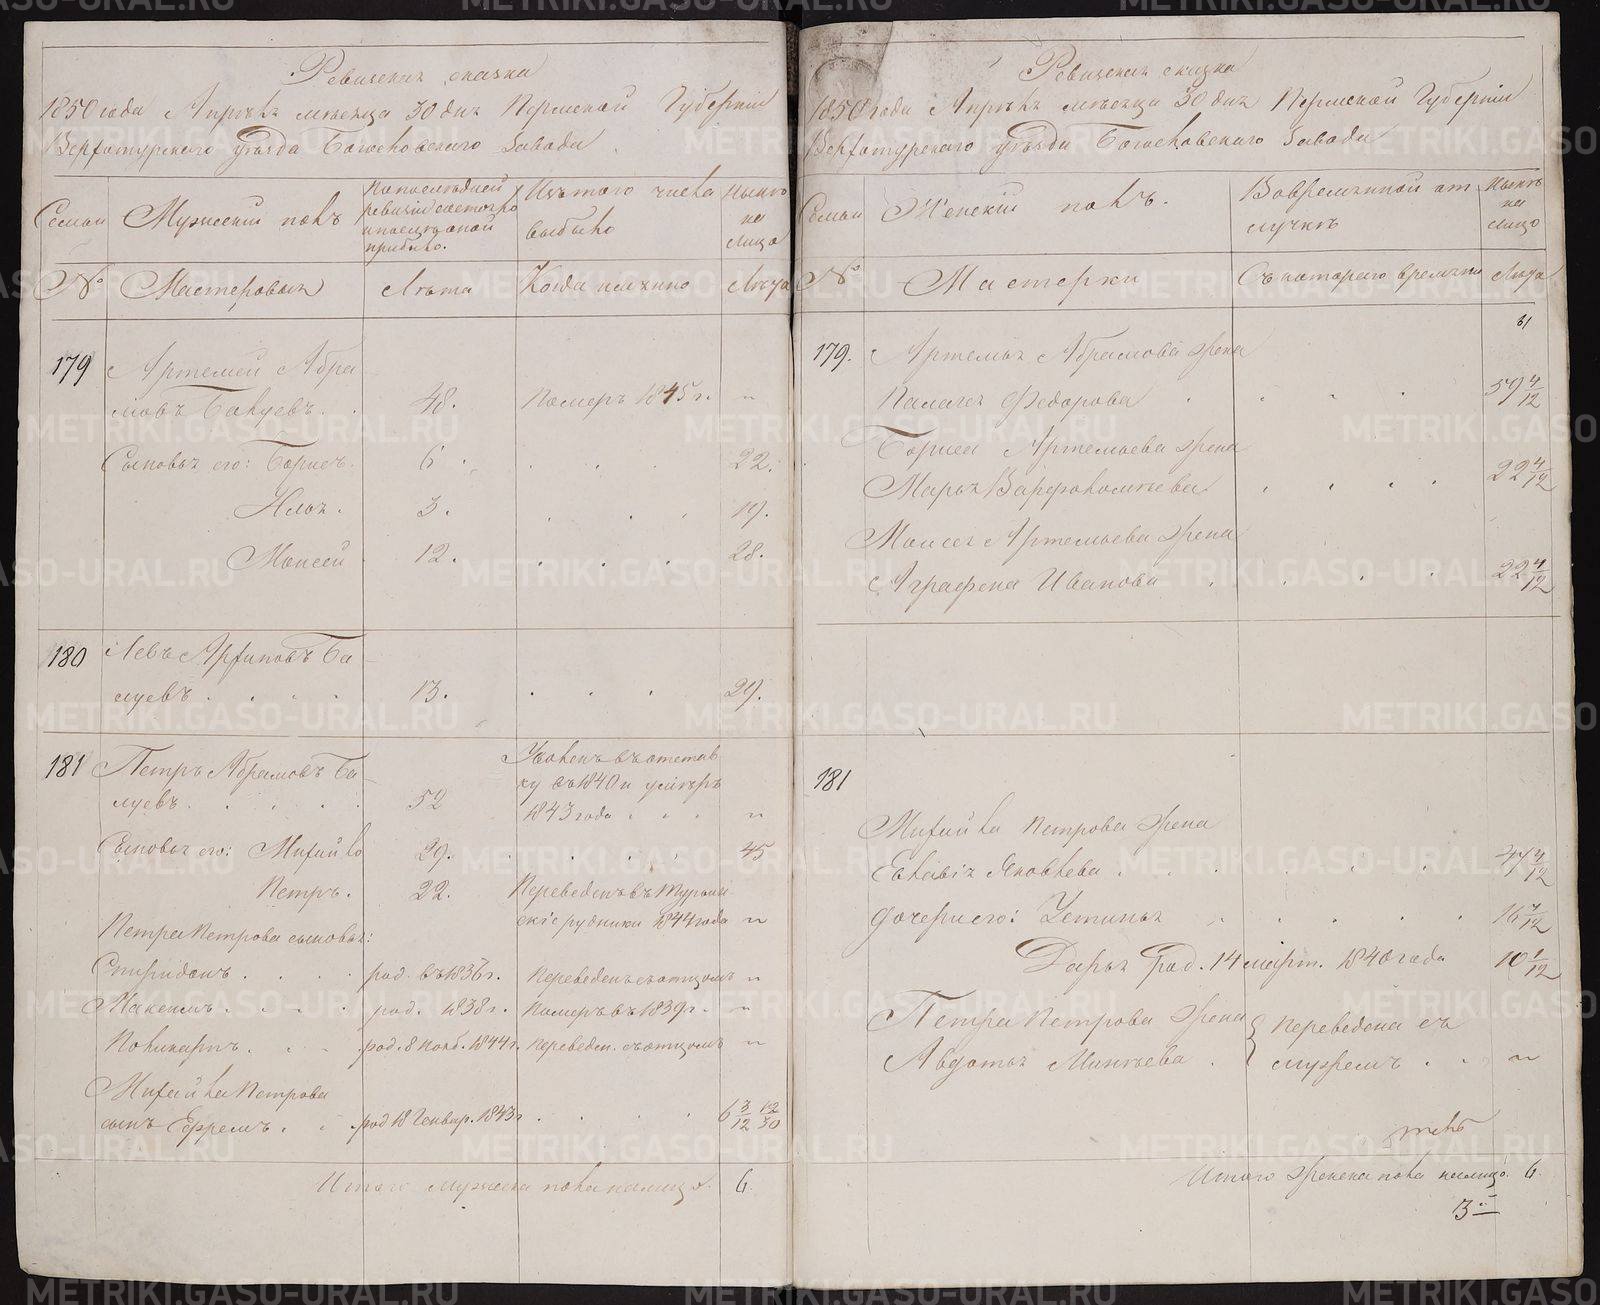 Ревизская сказка
1850 года Апрѣля мѣсяца 30 дня Пермской Губерніи
Верхотурскаго уѣзда Богословскаго Завода
Семьи
Мужескій полъ
По последней ревизіи состояло и после оной прибыло.
Изъ того числа выбыло
Ныне на лицо
№
Мастеровыя
Лѣта
Когда именно
Лѣта
179
Артемій Абра
мовъ Балуевъ. 48. Померъ 1845 г. "
Сыновья его: Борисъ. 6 22.
Илья. 3. 19.
Моисей 12. 28.
180
Левъ Архиповъ Ба
луевъ 13. 29.
181
Петръ Абрамовъ Ба
луевъ. 52 Уволенъ въ отстав
ку въ 1840 и умеръ
1843 года "
Сыновья его: Михайло 29. 45
Петръ. 22. Переведенъ въ Турьин
скіе рудники 1844 года "
Петра Петрова сыновья:
Спиридонъ род. въ 1836 г. Переведенъ съ отцомъ "
Максимъ род. 1838 г. Померъ въ 1839 г. "
Поликарпъ. род. 8 нояб. 1844 г. переведен. съ отцомъ "
Михайла Петрова
сынъ Ефремъ. род 18 Генвар. 1843 г 6 3/12 12/30
Итого мужеска пола на лицо. 6.
Ревизская сказка
1850 года Апрѣля мѣсяца 30 дня Пермской Губерніи
Верхотурскаго уѣзда Богословскаго Завода
Семьи
Женскій полъ.
Во временной от
лучкѣ
Ныне на лицо
№
Мастерки
Съ котораго времяни
Лѣта
61
179. Артемья Абрамова жена
Палагея Федорова 59 4/12
Бориса Артемьева жена
Марья Варфоломѣева 22 4/12
Моисея Артемьева жена
Аграфена Иванова 22 4/12
181
Михайла Петрова жена
Евлавія Яковлева 47 4/12
Дочери его: Устинья 16 7/12
Дарья род. 14 март. 1840 года 10 1/12
Петра Петрова жена переведена съ
Авдотья Минѣева мужемъ "
Итого женска пола налицо. 6.
METRIKI.GASO-URAL.RU